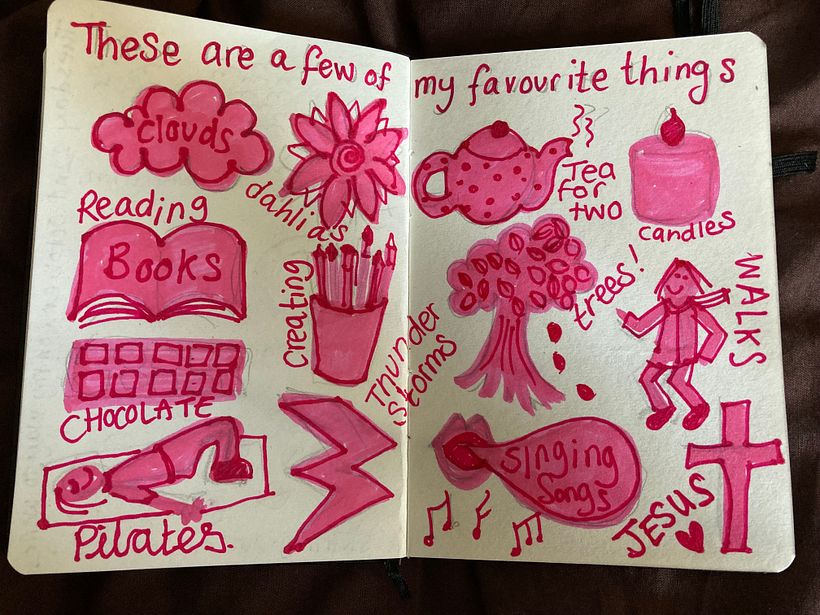 These are a few of my favourite things
clouds
dahlias
Reading
Books
creating
CHOCOLATE
Thunder
storms
Pilates.
Tea
for
two
candles
trees!
WALKS
singing
Songs
JESUS